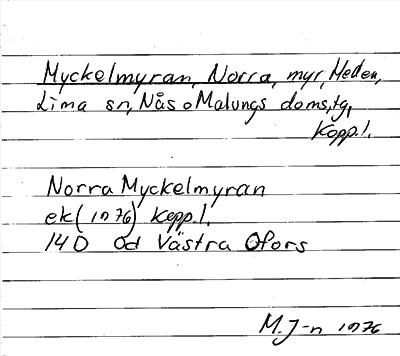 Myckelmyran, Norra, myr, Heden,
Lima sn, Nås o Malungs doms.tg,
Kopp.l.
Norra Myckelmyran
ek (1976) Kopp.l.
14D Od Västra Ofors
M.J-n 1976